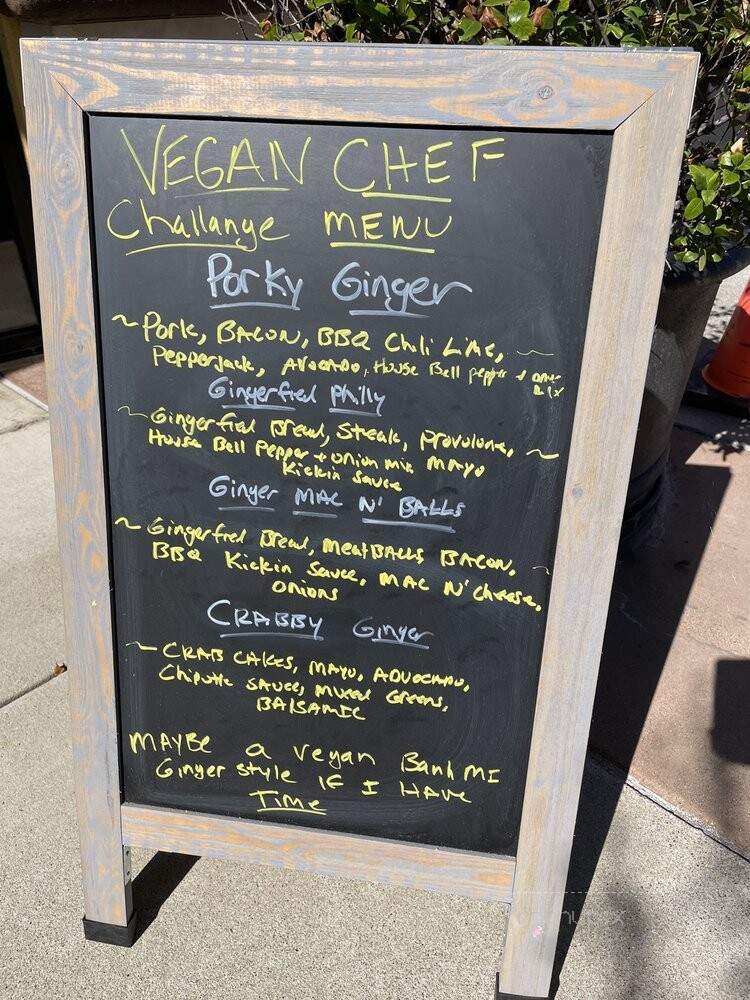 VEGAN CHEF
Challange MENU
Porky Ginger
~ Pork, BACON, BBQ Chili Lime, ~
Pepperjack, Avocado, House Bell pepper + onion
mix
Gingerfied Philly
~ Gingerfied Bread, Steak, provolone, ~
House Bell Pepper + onion mix MAYO
Kickin Sauce
Ginger MAC N' BALLS
~ Gingerfied Bread, MeatBALLS BACON, ~
BBQ Kickin Sauce, MAC N' Cheese,
onions
CRABBY Ginger
~ CRAB CAKES, MAYO, ADVOCADO,
Chipotle SAUCE, Mixed Greens,
BALSAMIC
MAYBE a vegan Banh MI
Ginger style IF I HAVE
Time